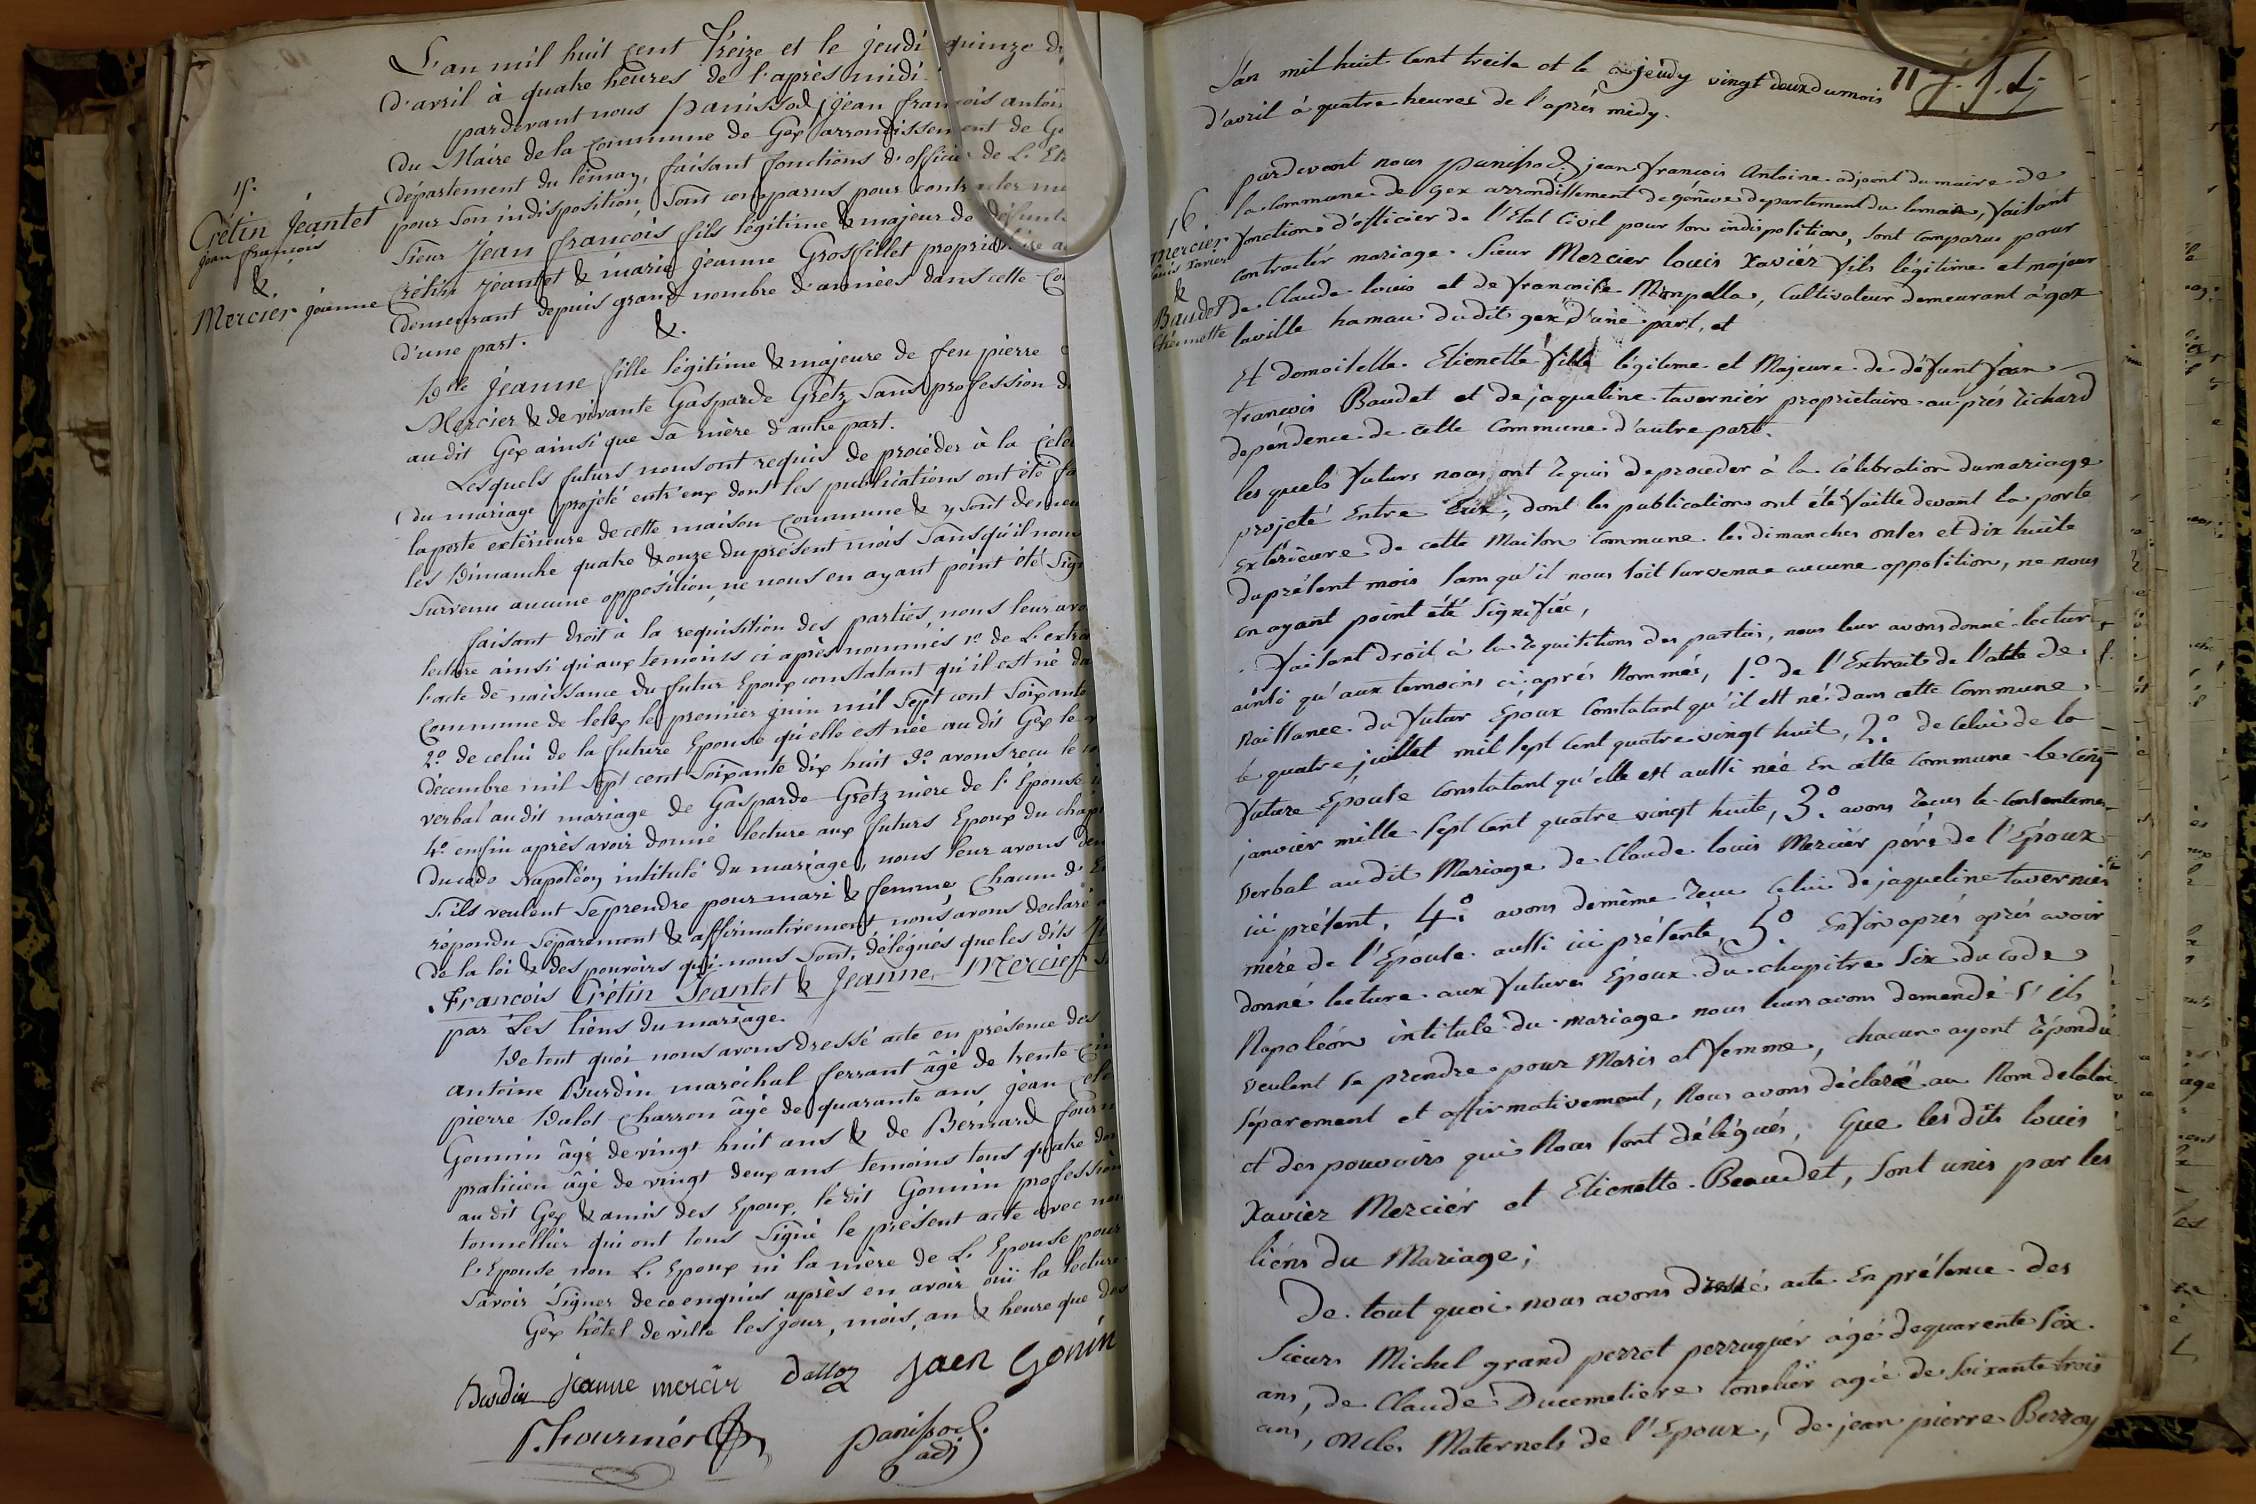 L'an mil huit cent Treize et le jeudi quinze d
d'avril à quatre heures de l'après midi.
pardevant nous panissod jean françois antoi
du Maire de la commune de Gex arrondissement de G
département du léman, faisant fonctions d'officier de L. Et
pour son indisposition, sont comparus pour contracter m
15.
Crétin Jeantet
jean françois
&
Mercier jeanne
Sieur Jean françois fils légitime & majeur de défunt
Crétin jeantet & marie jeanne Grosfillet propriétaire
demeurant depuis grand nombre d'années dans cette Co
d'une part.
&.
Dlle Jeanne fille légitime & majeure de feu pierre
Mercier & de vivante Gasparde Gretz sans profession d
audit Gex ainsi que sa mère d'autre part.
Lesquels futurs nous ont requis de procéder à la Célé
du mariage projeté entr'eux dont les publications ont été fa
la porte extérieure de cette maison commune & y sont demeu
les Dimanche quatre & onze du présent mois sans qu'il nous
survenu aucune opposition, ne nous en ayant point été sign
faisant droit à la requisition des parties, nous leur avo
lecture ainsi qu'aux temoins ci après nommés 1º de L. extra
l'acte de naissance du futur Epoux constatant qu'il est né da
Commune de lelex le premier juin mil sept cent soixante
2º de celui de la future Epouse qu'elle est née au dit Gex le
décembre mil sept cent soixante dix huit 3º avons reçu le
verbal au dit mariage de Gasparde Gretz mère de l'Epouse
4º enfin après avoir donné lecture aux futurs Epoux du chap
du code Napoléon intitulé du mariage, nous leur avons dem
s'ils veulent se prendre pour mari & femme Chacun d'
répondu séparément & affirmativement nous avons declaré
de la loi & des pouvoirs qui nous sont délégués que les dits
François Crétin Jeantet & Jeanne Mercier
par les liens du mariage.
De tout quoi nous avons dressé acte en présence des
antoine Burdin maréchal ferrant âgé de trente
pierre Dalot Charron âgé de quarante ans, jean
Gounin âgé de vingt huit ans & de Bernard fourn
praticien âgé de vingt deux ans temoins tous quatre
au dit Gex & amis des Epoux, le dit Gounin profession
tonnellier qui ont tous signé le présent acte avec no
l'Epouse non L. Epoux ni la mère de L. Epouse pour
savoir signer de ce enquis après en avoir ouï la lecture
Gex hôtel de ville les jour, mois, an & heure que de
Burdin jeanne mercier dalloz jaen Gonin
fournier panissod
adj
71
L'an mil huit cent treise et le jeudy vingt deux du mois
d'avril à quatre heures de l'après midy.
pardevant nous panissod jean francois Antoine adjoint du maire de
la commune de Gex arrondissement de génève departement du leman, faisant
16
Mercier
louis Xavier
&
Baudet
Etiennette
fonctions d'officier de l'Etat Civil pour son indisposition, sont comparus pour
contractér mariage. Sieur Mercier louis Xaviér fils légitime et majeur
de Claude louis et de francoise Monpella, Cultivateur demeurant à gex
laville hamau dudit gex d'une part, et
Et domoiselle Etienette fille légiteme et Majeure de défunt Jean
francois Baudet et de jaqueline taverniér propriétaire au prés Richard
dépéndence de cette Commune d'autre part.
les quels futurs nous ont requis de proceder à la Célebration du mariage
projeté Entre Eux, dont les publications ont été faitte devant la porte
Extérieure de cette Maison Commune les dimanches onses et dix huite
du présent mois sans qu'il nous soit survenue aucune opposition, ne nous
en ayant point été signifiée,
faisant droit à la requisitions des parties, nous leur avons donné lecture
ainsi qu'aux temoins ci après Nommés, 1º de l'Extrait de l'atte de
Naissance du futur Epoux Constatant qu'il est né dans cette Commune
le quatre juillet mil sept cent quatre vingt huit, 2º de celui de la
future Epouse constatant qu'elle est aussi née En cette Commune le cinq
janvier mille sept cent quatre vingt huite, 3º avons reçus le Consenteme
verbal audit Mariage de Claude louis Merciér pére de l'Epoux
ici présent, 4º avons demême reçu celui de jaqueline tavernier
mére de l'Epouse aussi ici présente, 5º Enfin aprés aprés avoir
donné lecture aux futures Epoux du chapitre six du code
Napoléon intitulé du mariage nous leurs avons demandé s'ils
veulent se prendre pour Maris et femme, chacun ayent répondu
séparement et affirmativement, Nous avons déclaré au Nom de la loi
et des pouvoirs qui Nous sont délégués, Que les dits louis
Xaviér Merciér et Etienette Beaudet, sont unis par les
liens du Mariage;
De tout quoi nous avons dressé acte En présence des
Sieurs Michel grand perret perruquér âgé de quarente six
ans, de Claude Ducimetiere tonelier agée de soixante trois
ans, oncles Maternels de l'Epoux, de jean pierre Berroy